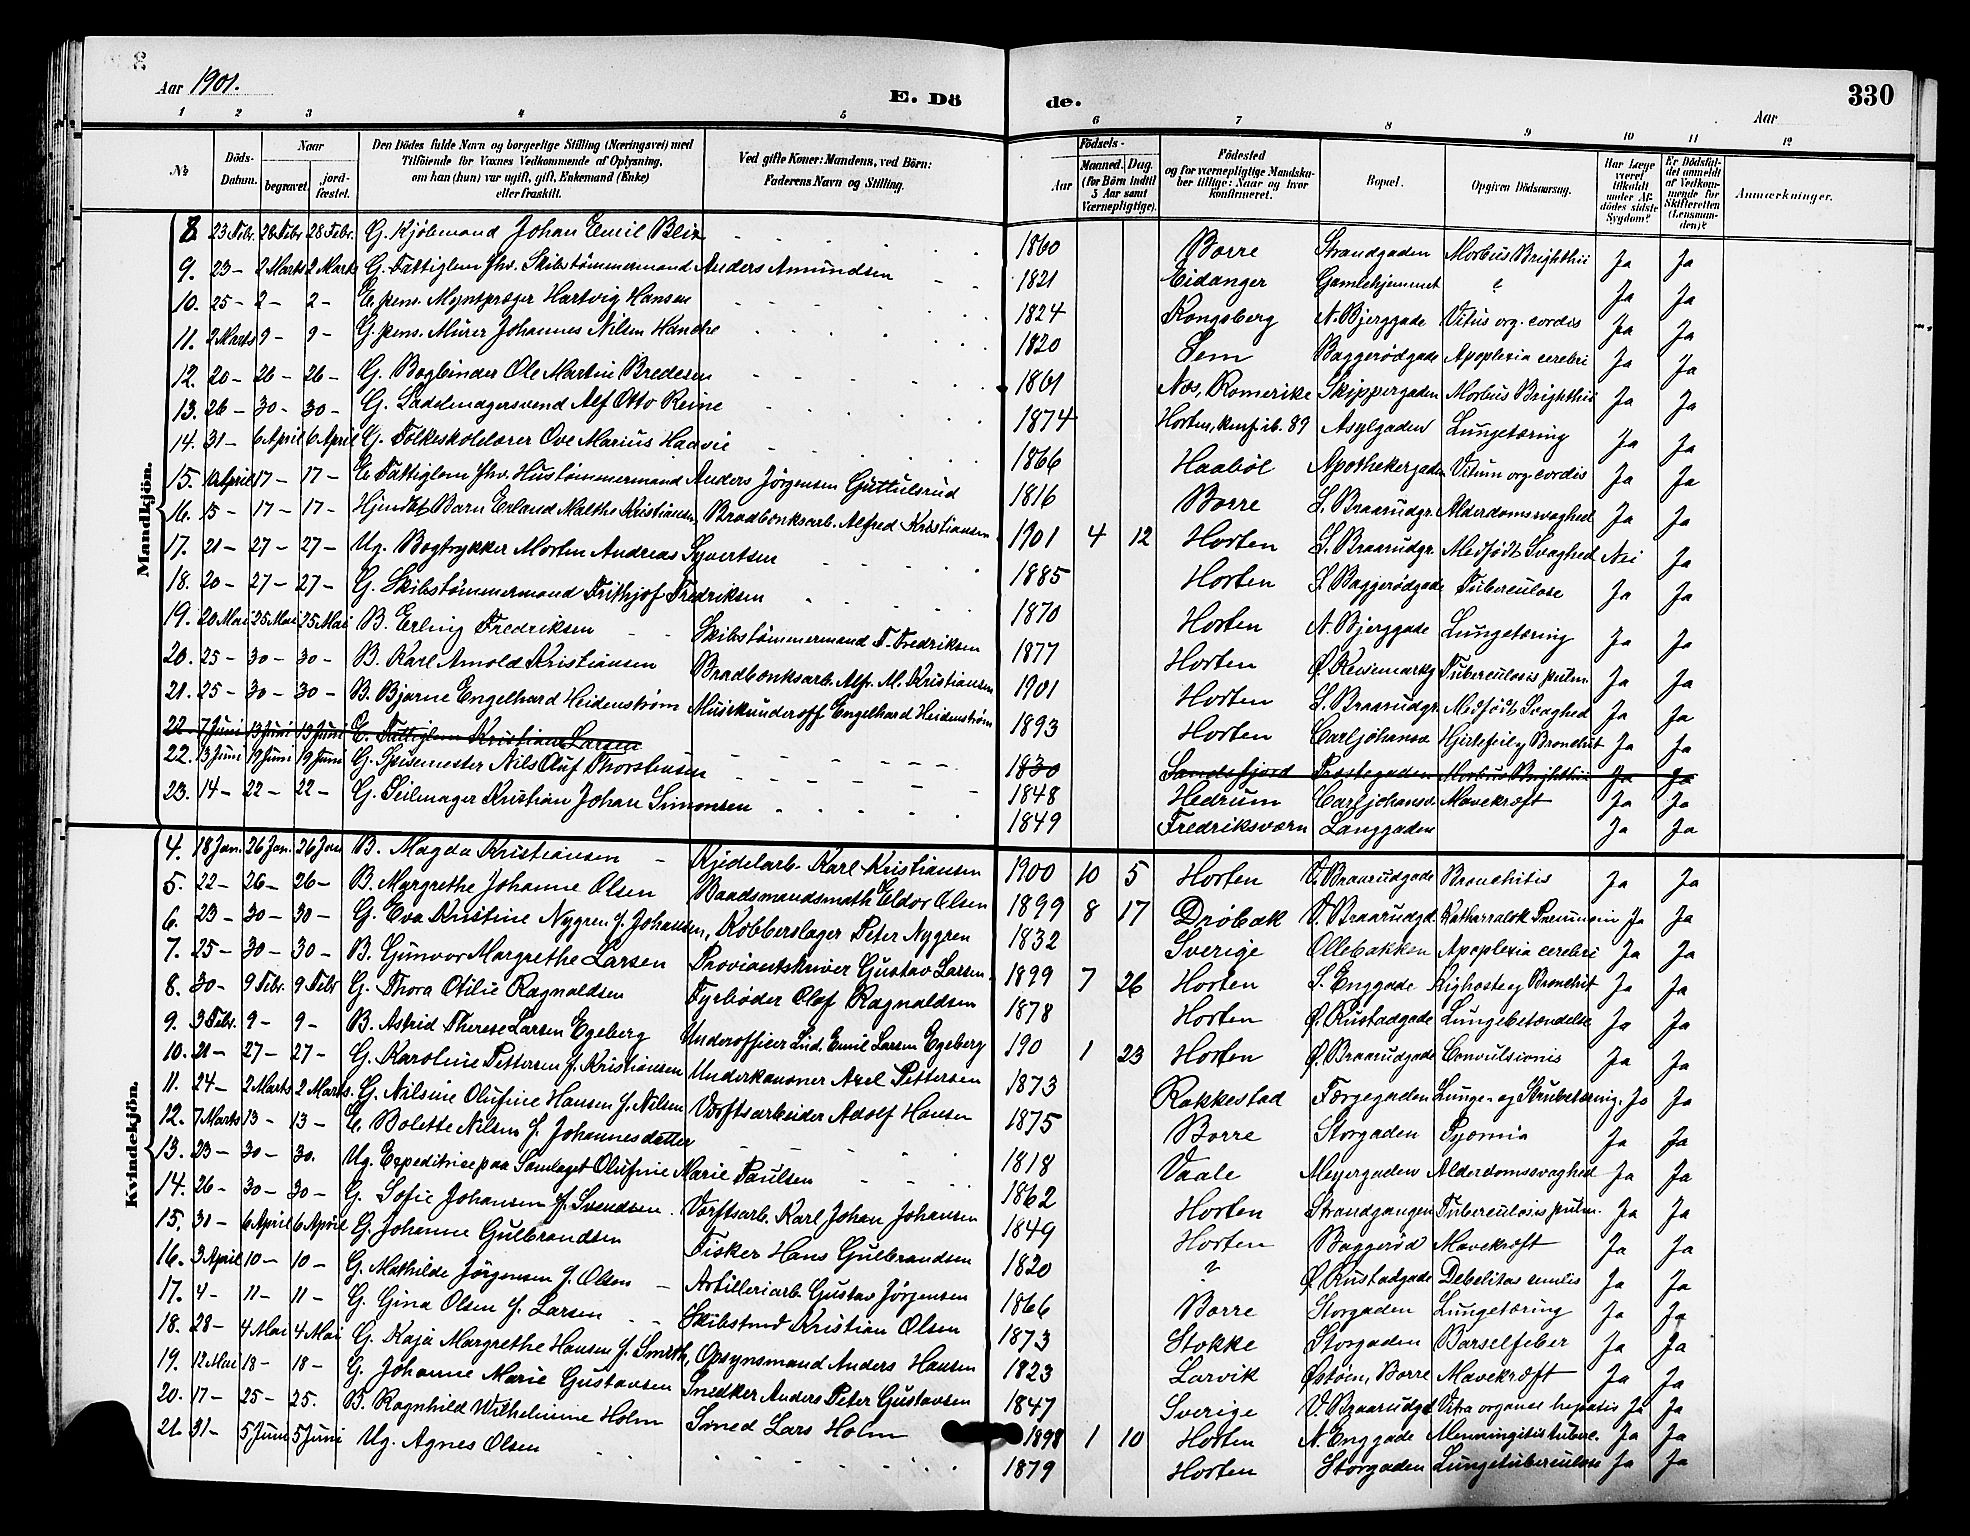 Aar 1901.
E. Dö
de.
Aar
330
1 2 3 4 5 6 7 8 9 10 11 12
№
Döds-Datum.
Naar
begravet.
jord-fæstet.
Den Dödes fulde Navn og borgerlige Stilling (Næringsvei) med Tilföiende for Voxnes Vedkommende af Oplysning, om han (hun) var ugift, gift, Enkemand (Enke) eller fraskilt.
Ved gifte Koner: Mandens, ved Börn: Faderens Navn og Stilling.
Födsels-
Aar
Maaned. Dag.
(for Börn indtil 5 Aar samt Værnepligtige).
Födested og for værnepligtige Mandskaber tillige: Naar og hvor konfirmeret.
Bopæl.
Opgiven Dödsaarsag.
Har Læge været tilkaldt under Afdödes sidste Sygdom?
Er Dödsfaldet anmeldt af Vedkommende for Skifteretten (Lensmanden)?
Anmærkninger.
Mandkjön.
8. 23 Febr. 28 Febr 28 Febr. G. Kjöbmand Johan Emil Blix 1860 Borre Strandgaden Morbus Brighthii Ja Ja
9. 23 - 2 Marts 2 Marts G. Fattiglem fhv. Skibstømmermand Anders Amundsen 1821 Eidanger Gamlehjemmet ? Ja Ja
10. 25 - 2 - 2 - E. pens. Myntpræger Hartvig Hansen 1824 Kongsberg N. Bjerggade Vitus org. cordis Ja Ja
11. 2 Marts 9 - 9 - G. pens. Murer Johannes Nilsen Hanche 1820 Sem Baggerødgade Apoplexia cerebri Ja Ja
12. 20 - 26 - 26 - G. Bogbinder Ole Martin Bredesen 1861 Næs, Romerike Skippergaden Morbus Brighthii Ja Ja
13. 26 - 30 - 30 - G. Sadelmagersvend Alf Otto Reine 1874 Horten, konf. ib. 89 Asylgaden Lungetæring Ja Ja
14. 31 - 6 April 6 April G. Folkeskolelærer Ove Marius Haavie 1866 Haaböl Apothekergaden Vitum org. cordis Ja Ja
15. April 17 - 17 - E. Fattiglem fhv. Hustømmermand Anders Jörgensen Guttulsrud 1816 Borre S. Braarudgr. Alderdomssvaghed Ja Ja
16. 15 - 17 - 17 - Hjemdbt Barn Erland Malths Kristiansen, Bradbænksarb. Alfred Kristiansen 1901 4 12 Horten S. Braarudgr. Medfödt Svaghed Nei Ja
17. 21 - 27 - 27 - Ug. Bogtrykker Morten Andreas Syvertsen 1885 Horten S. Baggerødgade Tuberculose Ja Ja
18. 20 - 27 - 27 - G. Skibstømmermand Frithjof Fredriksen 1870 Horten N. Bjerggade Lungetæring Ja Ja
19. 20 Mai 25 Mai 25 Mai B. Erling Fredriksen Skibstømmermand F. Fredriksen 1877 Horten Ø. Keisemarkg Tuberculosis pulm. Ja Ja
20. 25 - 30 - 30 - B. Karl Arnold Kristiansen Bradbænksarb. Alfr. M. Kristiansen 1901 Horten S. Braarudgr. Medfödt Svaghed Ja Ja
21. 25 - 30 - 30 - B. Bjarne Engelhard Heidenstrøm Musikunderoff Engelhard Heidenström 1893 Horten Carljohansv Hjertefeil og Bronchit Ja Ja
22. 7 Juni 13 Juni 13 Juni E. Fattiglem Kristian Larsen 1830 Sandefjord Præstegaden Morbus Brighthii Ja Ja
22. 13 Juni 19 Juni 19 Juni G. Spisemester Nils Oluf Thorstensen 1848 Hedrum Carljohansv. Mavekræft Ja Ja
23. 14 - 22 - 22 - G. Seilmager Kristian Johan Simonsen 1849 Fredriksværn Langgaden Ja Ja
Kvindekjön.
4. 18 Jan. 26 Jan. 26 Jan B. Magda Kristiansen Kjedelarb. Karl Kristiansen 1900 10 5 Horten V. Braarudgade Bronchitis Ja Ja
5. 22 - 26 - 26 - B. Margrethe Johanne Olsen Baadsmandsmath Eldor Olsen 1899 8 17 Dröbak V. Braarudgd. Katharralsk Pneumonie Ja Ja
6. 23 - 30 - 30 - G. Eva Kristine Nygren f. Johansen, Kobberslager Peter Nygren 1832 Sverige Ollebakken Apoplexia cerebri Ja Ja
7. 25 - 30 - 30 - B. Gunvor Margrethe Larsen Proviantskriver Gustav Larsen 1899 7 26 Horten S. Enggade Kighoste og Bronchit Ja Ja
8. 30 - 9 Febr. 9 Febr G. Thora Otilie Ragnaldsen Fyrbøder Olaf Ragnaldsen 1878 Horten Ø. Rustadgade Lungebetændelse Ja Ja
9. 3 Febr. 9 - 9 - B. Astrid Therese Larsen Egeberg Underofficer Lud. Emil Larsen Egeberg 190 1 23 Horten Ø. Braarudgade Convulsionis Ja Ja
10. 21 - 27 - 27 - G. Karoline Pettersen f. Kristiansen Underkanoner Axel Pettersen 1873 Rakkestad Færgegaden Lunge- og Strubetæring. Ja Ja
11. 24 - 2 Marts 2 Marts. G. Nilsine Olufine Hansen f. Nilsen Værftsarbeider Adolf Hansen 1875 Borre Storgaden Pyæmia Ja Ja
12. 7 Marts 13 - 13 - E. Bolette Nilsen f. Johannesdatter 1818 Vaale Meyergaden Alderdomssvaghed Ja Ja
13. 23 - 30 - 30. Ug. Expeditrice paa Samlaget Olufine Marie Paulsen 1862 Horten Strandgangen Tuberculosis pulm. Ja Ja
14. 26 - 30 - 30 - G. Sofie Johansen f. Svendsen Værftsarb. Karl Johan Johansen 1849 Horten Baggeröd Mavekræft Ja Ja
15. 31 - 6 April 6 April G. Johanne Gulbrandsen Fisker Hans Gulbrandsen 1820 ? Ø. Rustadgade Debelitas senilis Ja Ja
16. 3 April 10 - 10 - G. Mathilde Jörgensen f. Olsen Artilleriarb. Gustav Jørgensen 1866 Borre Storgaden Lungetæring Ja Ja
17. 4 - 11 - 11 - G. Gina Olsen f. Larsen Skibstmd Kristian Olsen 1873 Stokke Storgaden Barselfeber Ja Ja
18. 28 - 4 Mai 4 Mai G. Kaja Margrethe Hansen f. Smith, Opsynsmand Anders Hansen 1823 Larvik Østøen, Borre Mavekræft Ja Ja
19. 12 Mai 18 - 18 - G. Johanne Marie Gustavsen Snedker Anders Peter Gustavsen 1847 Sverige V. Braarudgd Vitia organes hepatis Ja Ja
20. 17 - 25 - 25. B. Ragnhild Wilhelmine Holm Smed Lars Holm 1898 1 10 Horten N. Enggade Menningitis tuberc. Ja Ja
21. 31 - 5 Juni 5 Juni Ug. Agnes Olsen 1879 Horten Storgaden Lungetuberculose Ja Ja